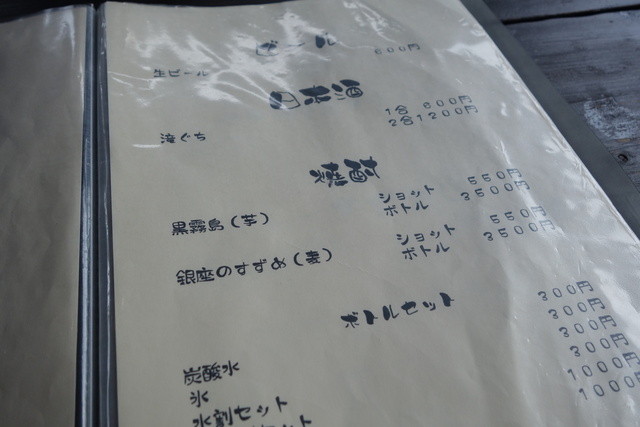 ビール
生ビール 600円
日本酒
滝ぐち 1合 600円
2合1200円
焼酎
黒霧島(芋) ショット 550円
ボトル 3500円
銀座のすずめ(麦) ショット 550円
ボトル 3500円
ボトルセット
炭酸水 300円
氷 300円
水割セット 300円
セット 300円
1000円
1000円